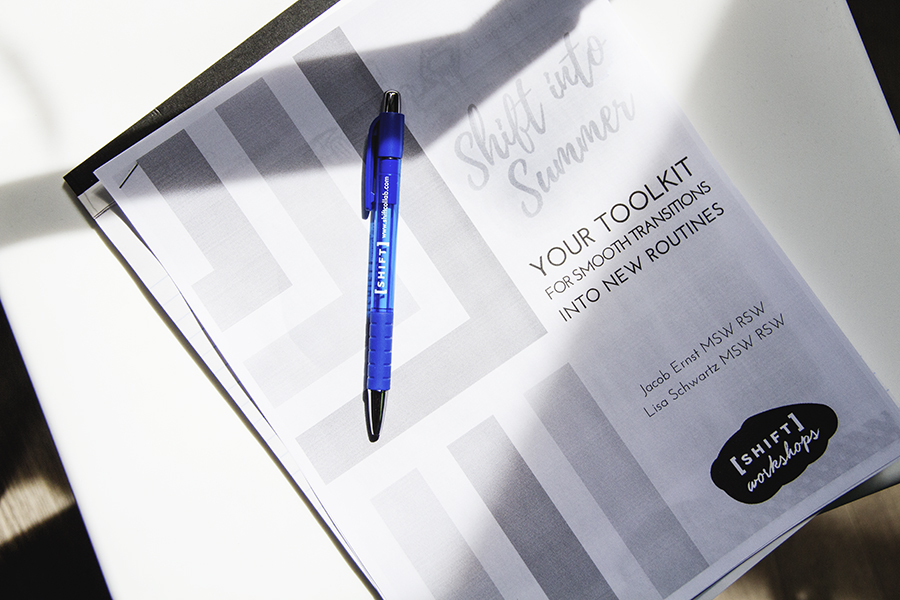 Shift into
Summer
YOUR TOOLKIT
FOR SMOOTH TRANSITIONS
INTO NEW ROUTINES
Jacob Ernst MSW RSW
Lisa Schwartz MSW RSW
[SHIFT]
workshops
[SHIFT] www.shiftcollab.com